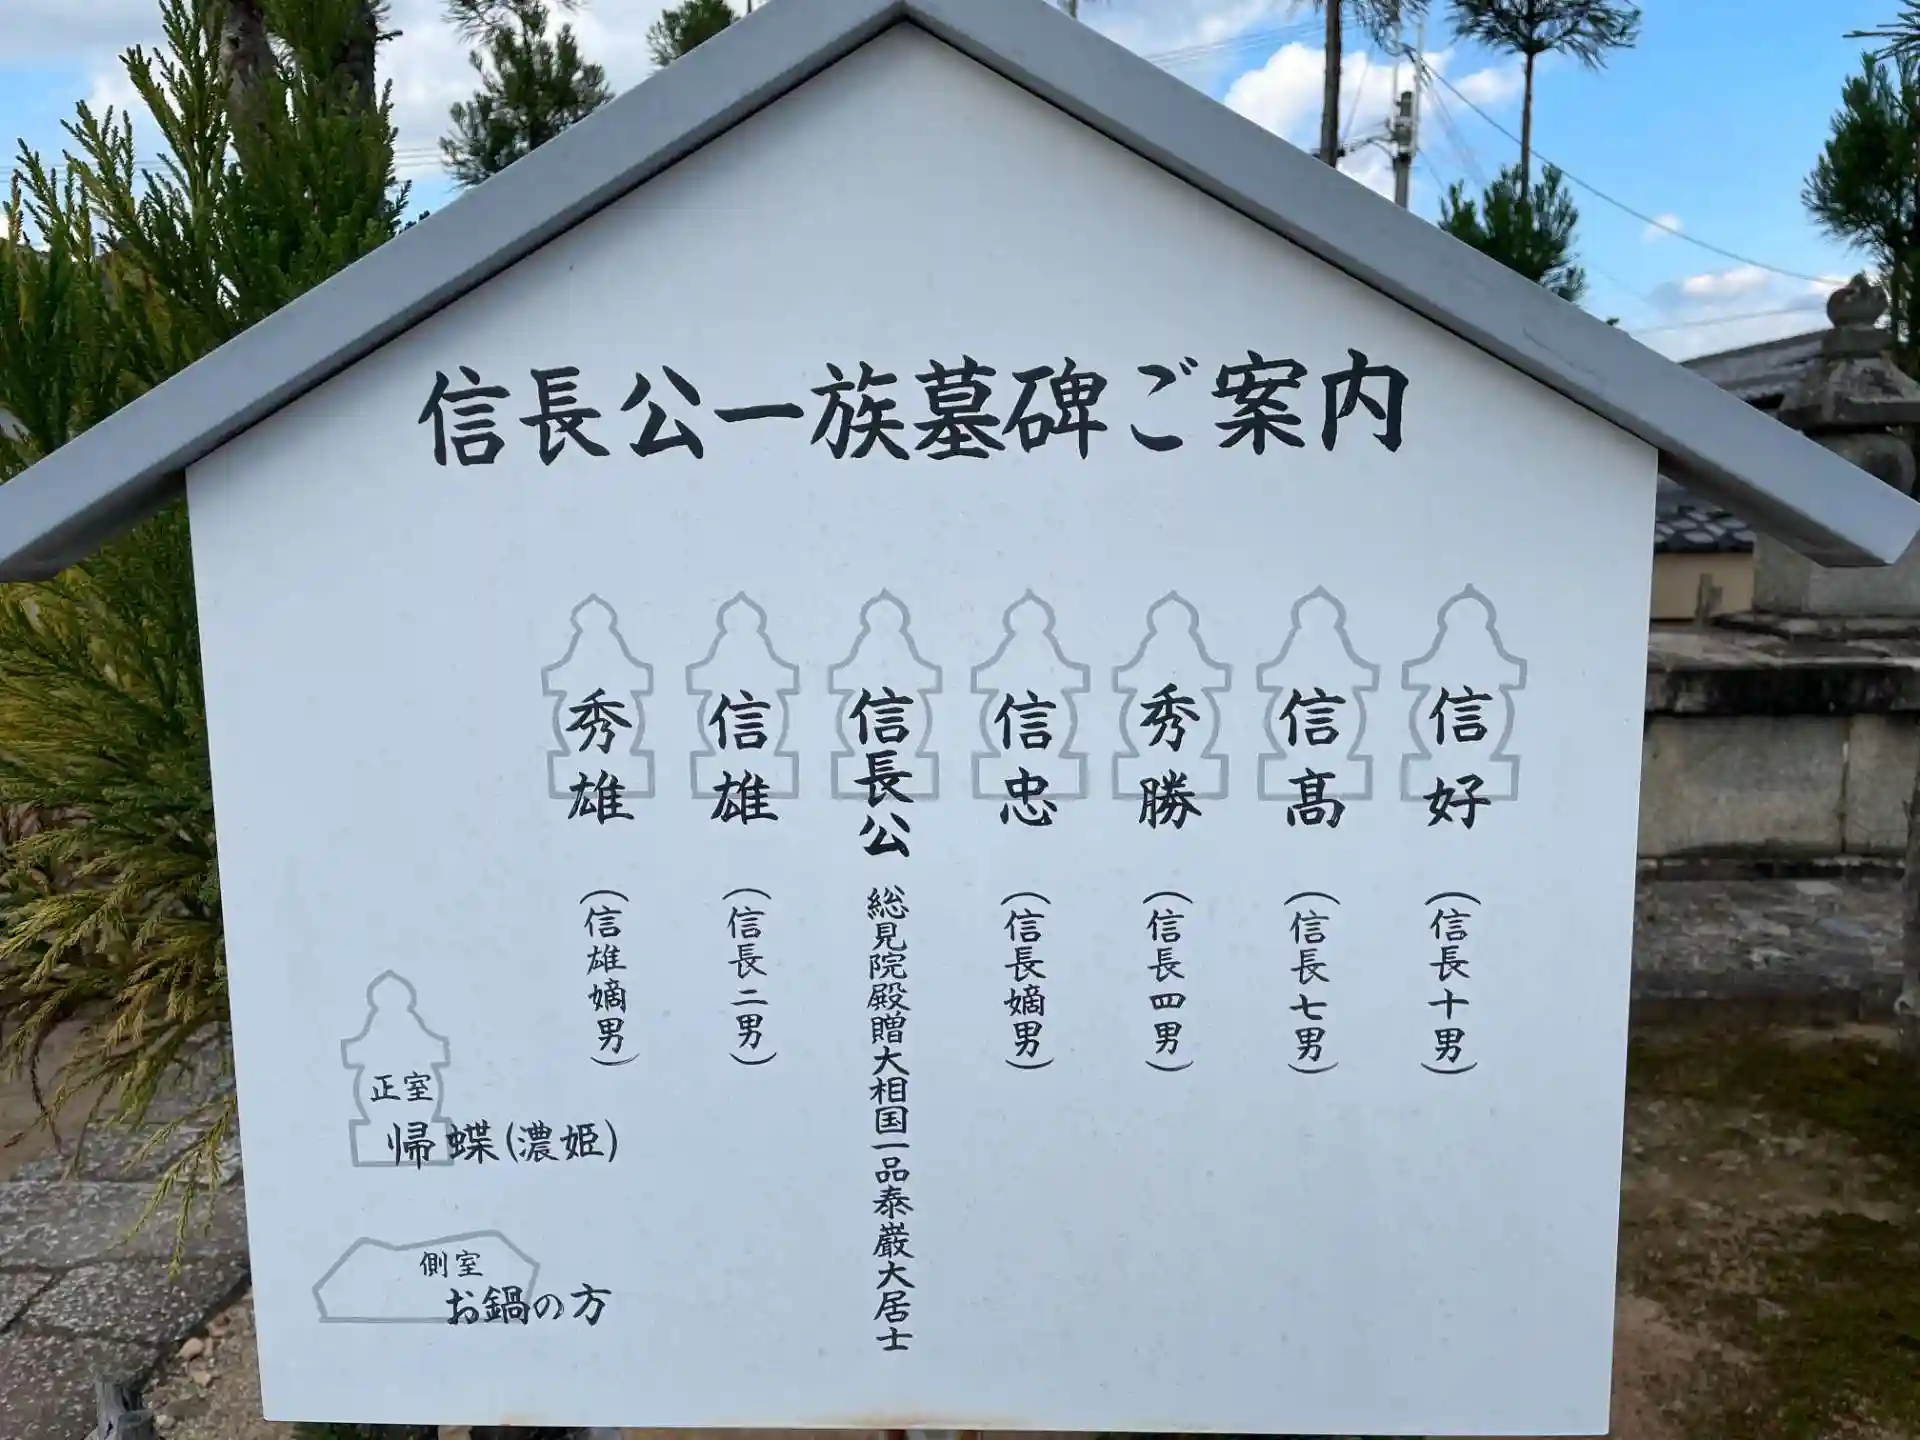 信長公一族墓碑ご案内
信好
(信長十男)
信高
(信長七男)
秀勝
(信長四男)
信忠
(信長嫡男)
信長公
総見院殿贈大相国一品泰巌大居士
信雄
(信長二男)
秀雄
(信雄嫡男)
正室
帰蝶(濃姫)
側室
お鍋の方